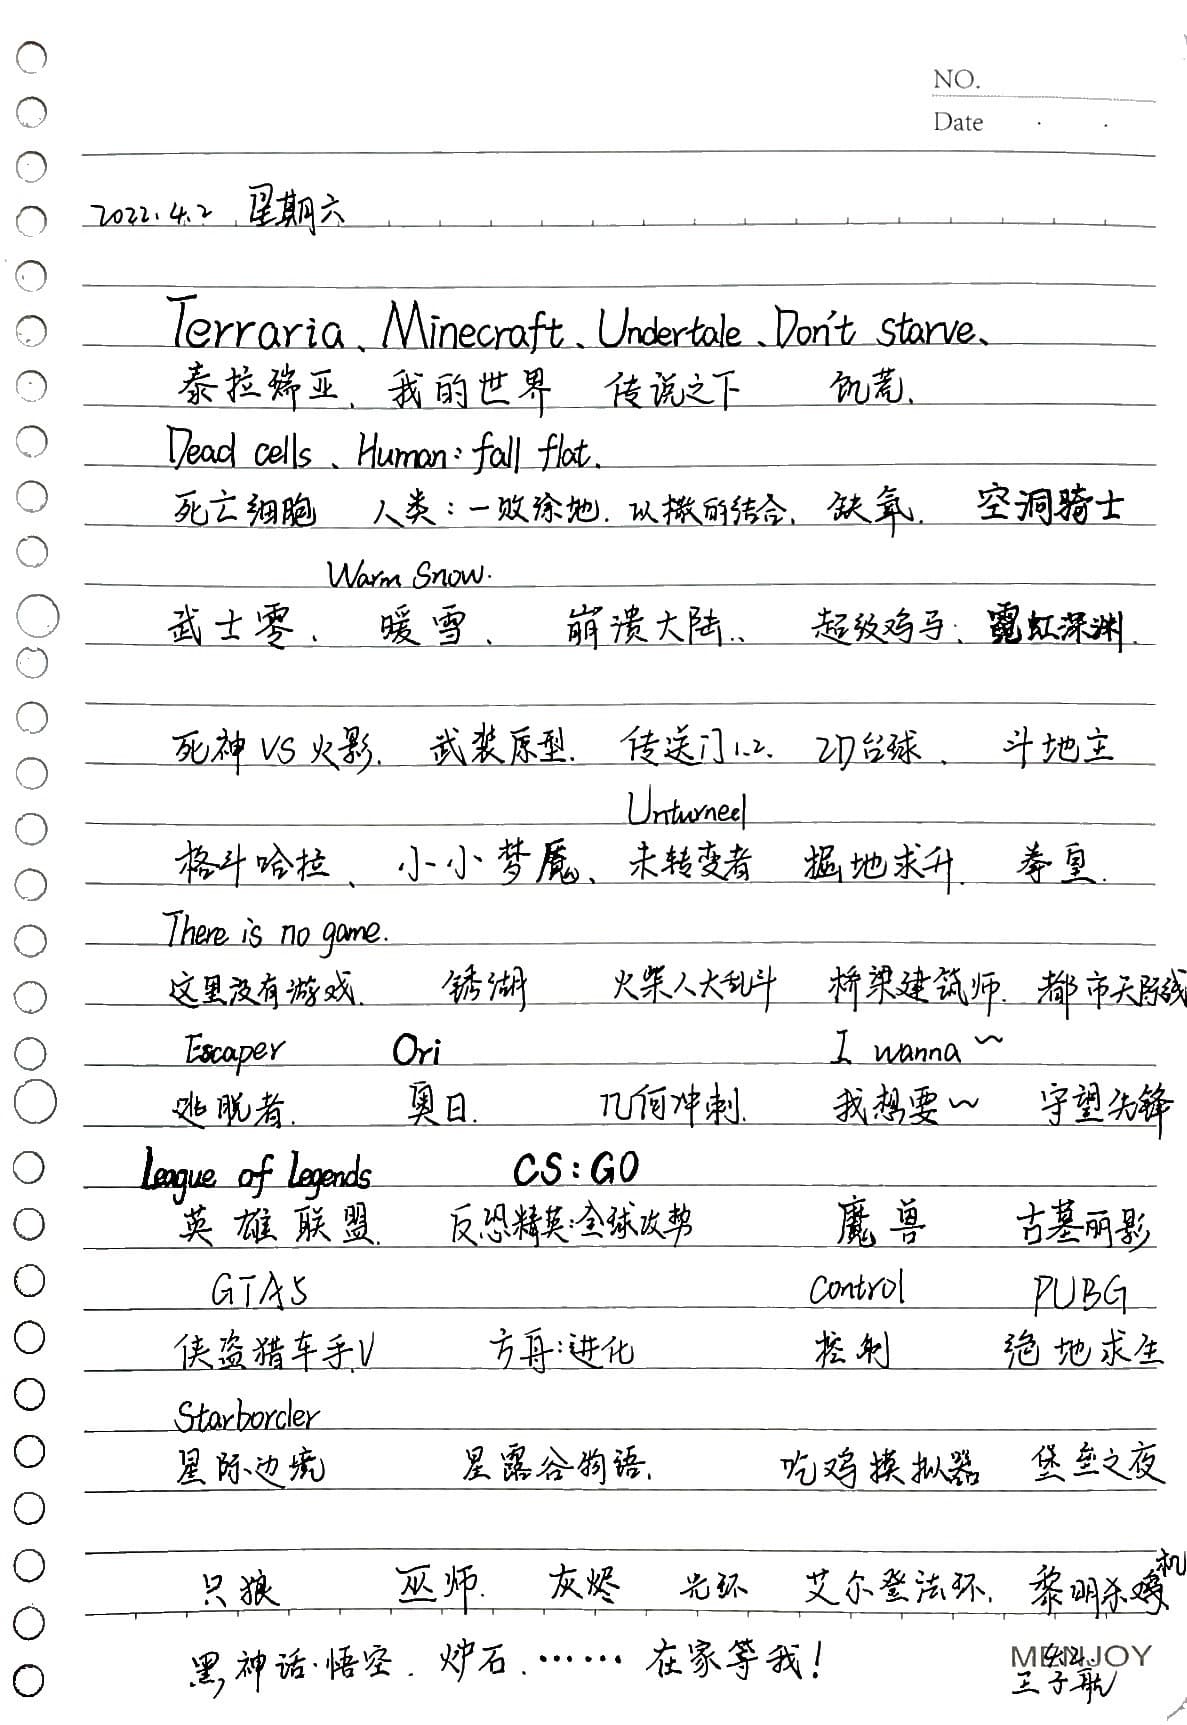 NO.
Date
2022.4.2 星期六
Terraria、Minecraft、Undertale、Don't starve、
泰拉瑞亚、我的世界 传说之下 饥荒、
Dead cells、Human: fall flat.
死亡细胞 人类:一败涂地. 以撒的结合. 缺氧. 空洞骑士
Warm Snow.
武士零、暖雪、崩溃大陆、超级鸡马; 霓虹深渊.
死神VS火影. 武装原型. 传送门1.2. 2D台球、斗地主
Unturned
格斗哈拉、小小梦魇、未转变者 掘地求升. 拳皇.
There is no game.
这里没有游戏. 锈湖 火柴人大乱斗 桥梁建筑师. 都市天际线
Escaper Ori I wanna~
逃脱者. 奥日. 几何冲刺. 我想要~ 守望先锋
League of Legends CS:GO
英雄联盟. 反恐精英:全球攻势 魔兽 古墓丽影
GTA5 Control PUBG
侠盗猎车手V 方舟:进化 控制 绝地求生
Starborder
星际边境 星露谷物语. 吃鸡模拟器 堡垒之夜
只狼 巫师. 灰烬 光环 艾尔登法环. 黎明杀鸡机
黑神话·悟空. 炉石.…… 在家等我!
MENJOY
4.2.
王子航